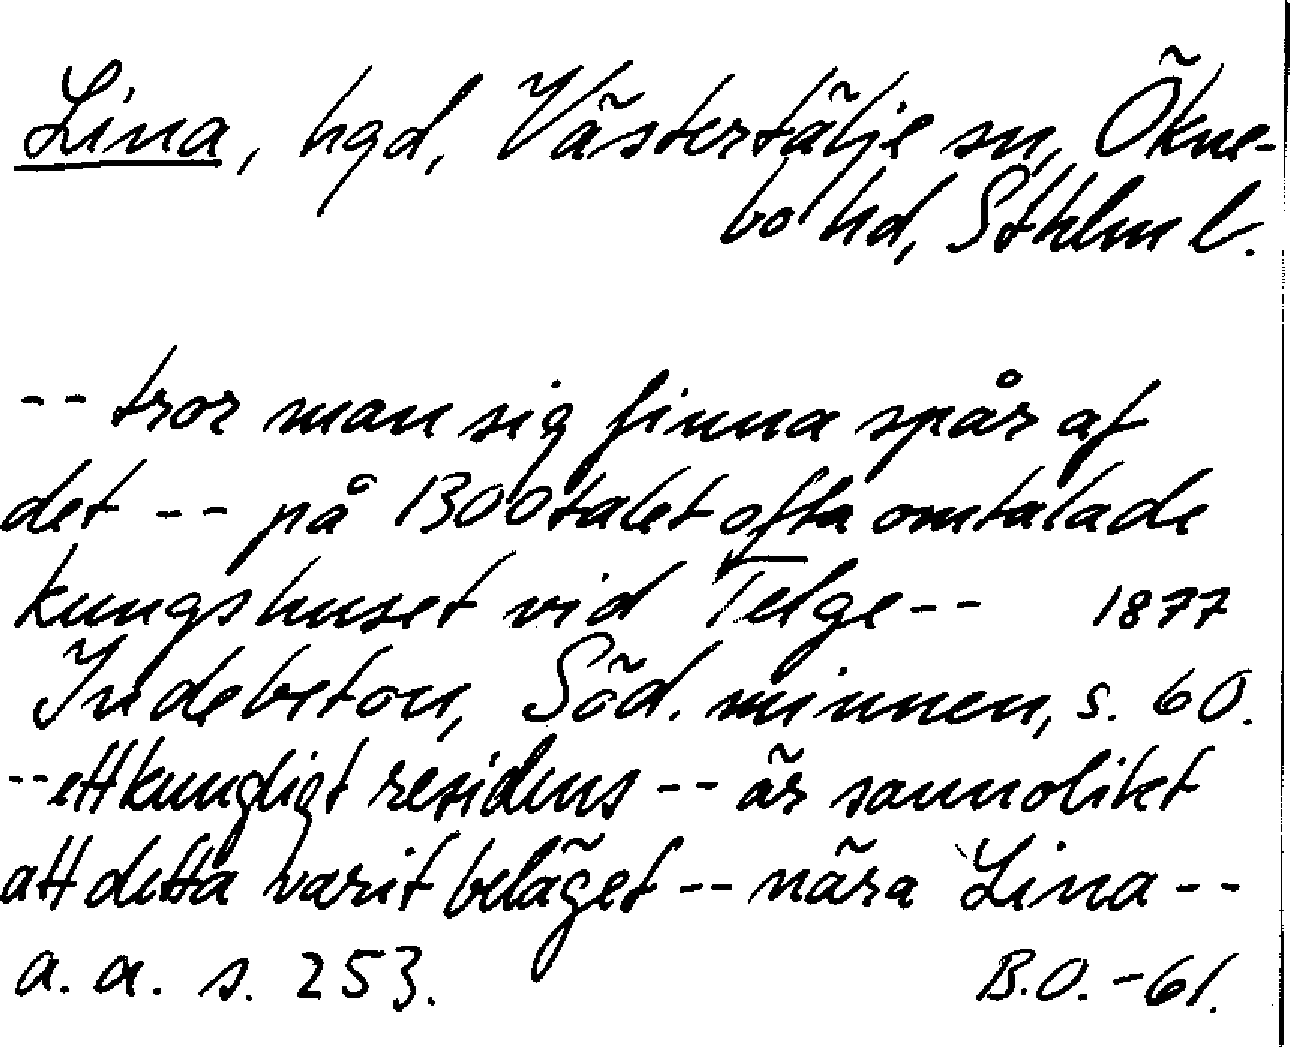 Lina, hgd, Västertälje sn, Ökne-
bo hd, Sthlm l.
-- tror man sig finna spår af
det -- på 1300talet ofta omtalade
kungshuset vid Telge -- 1877
Indebetou, Söd. minnen, s. 60.
-- ett kungligt residens -- är sannolikt
att detta varit beläget -- nära Lina --
a. a. s. 253. B.O. -61.